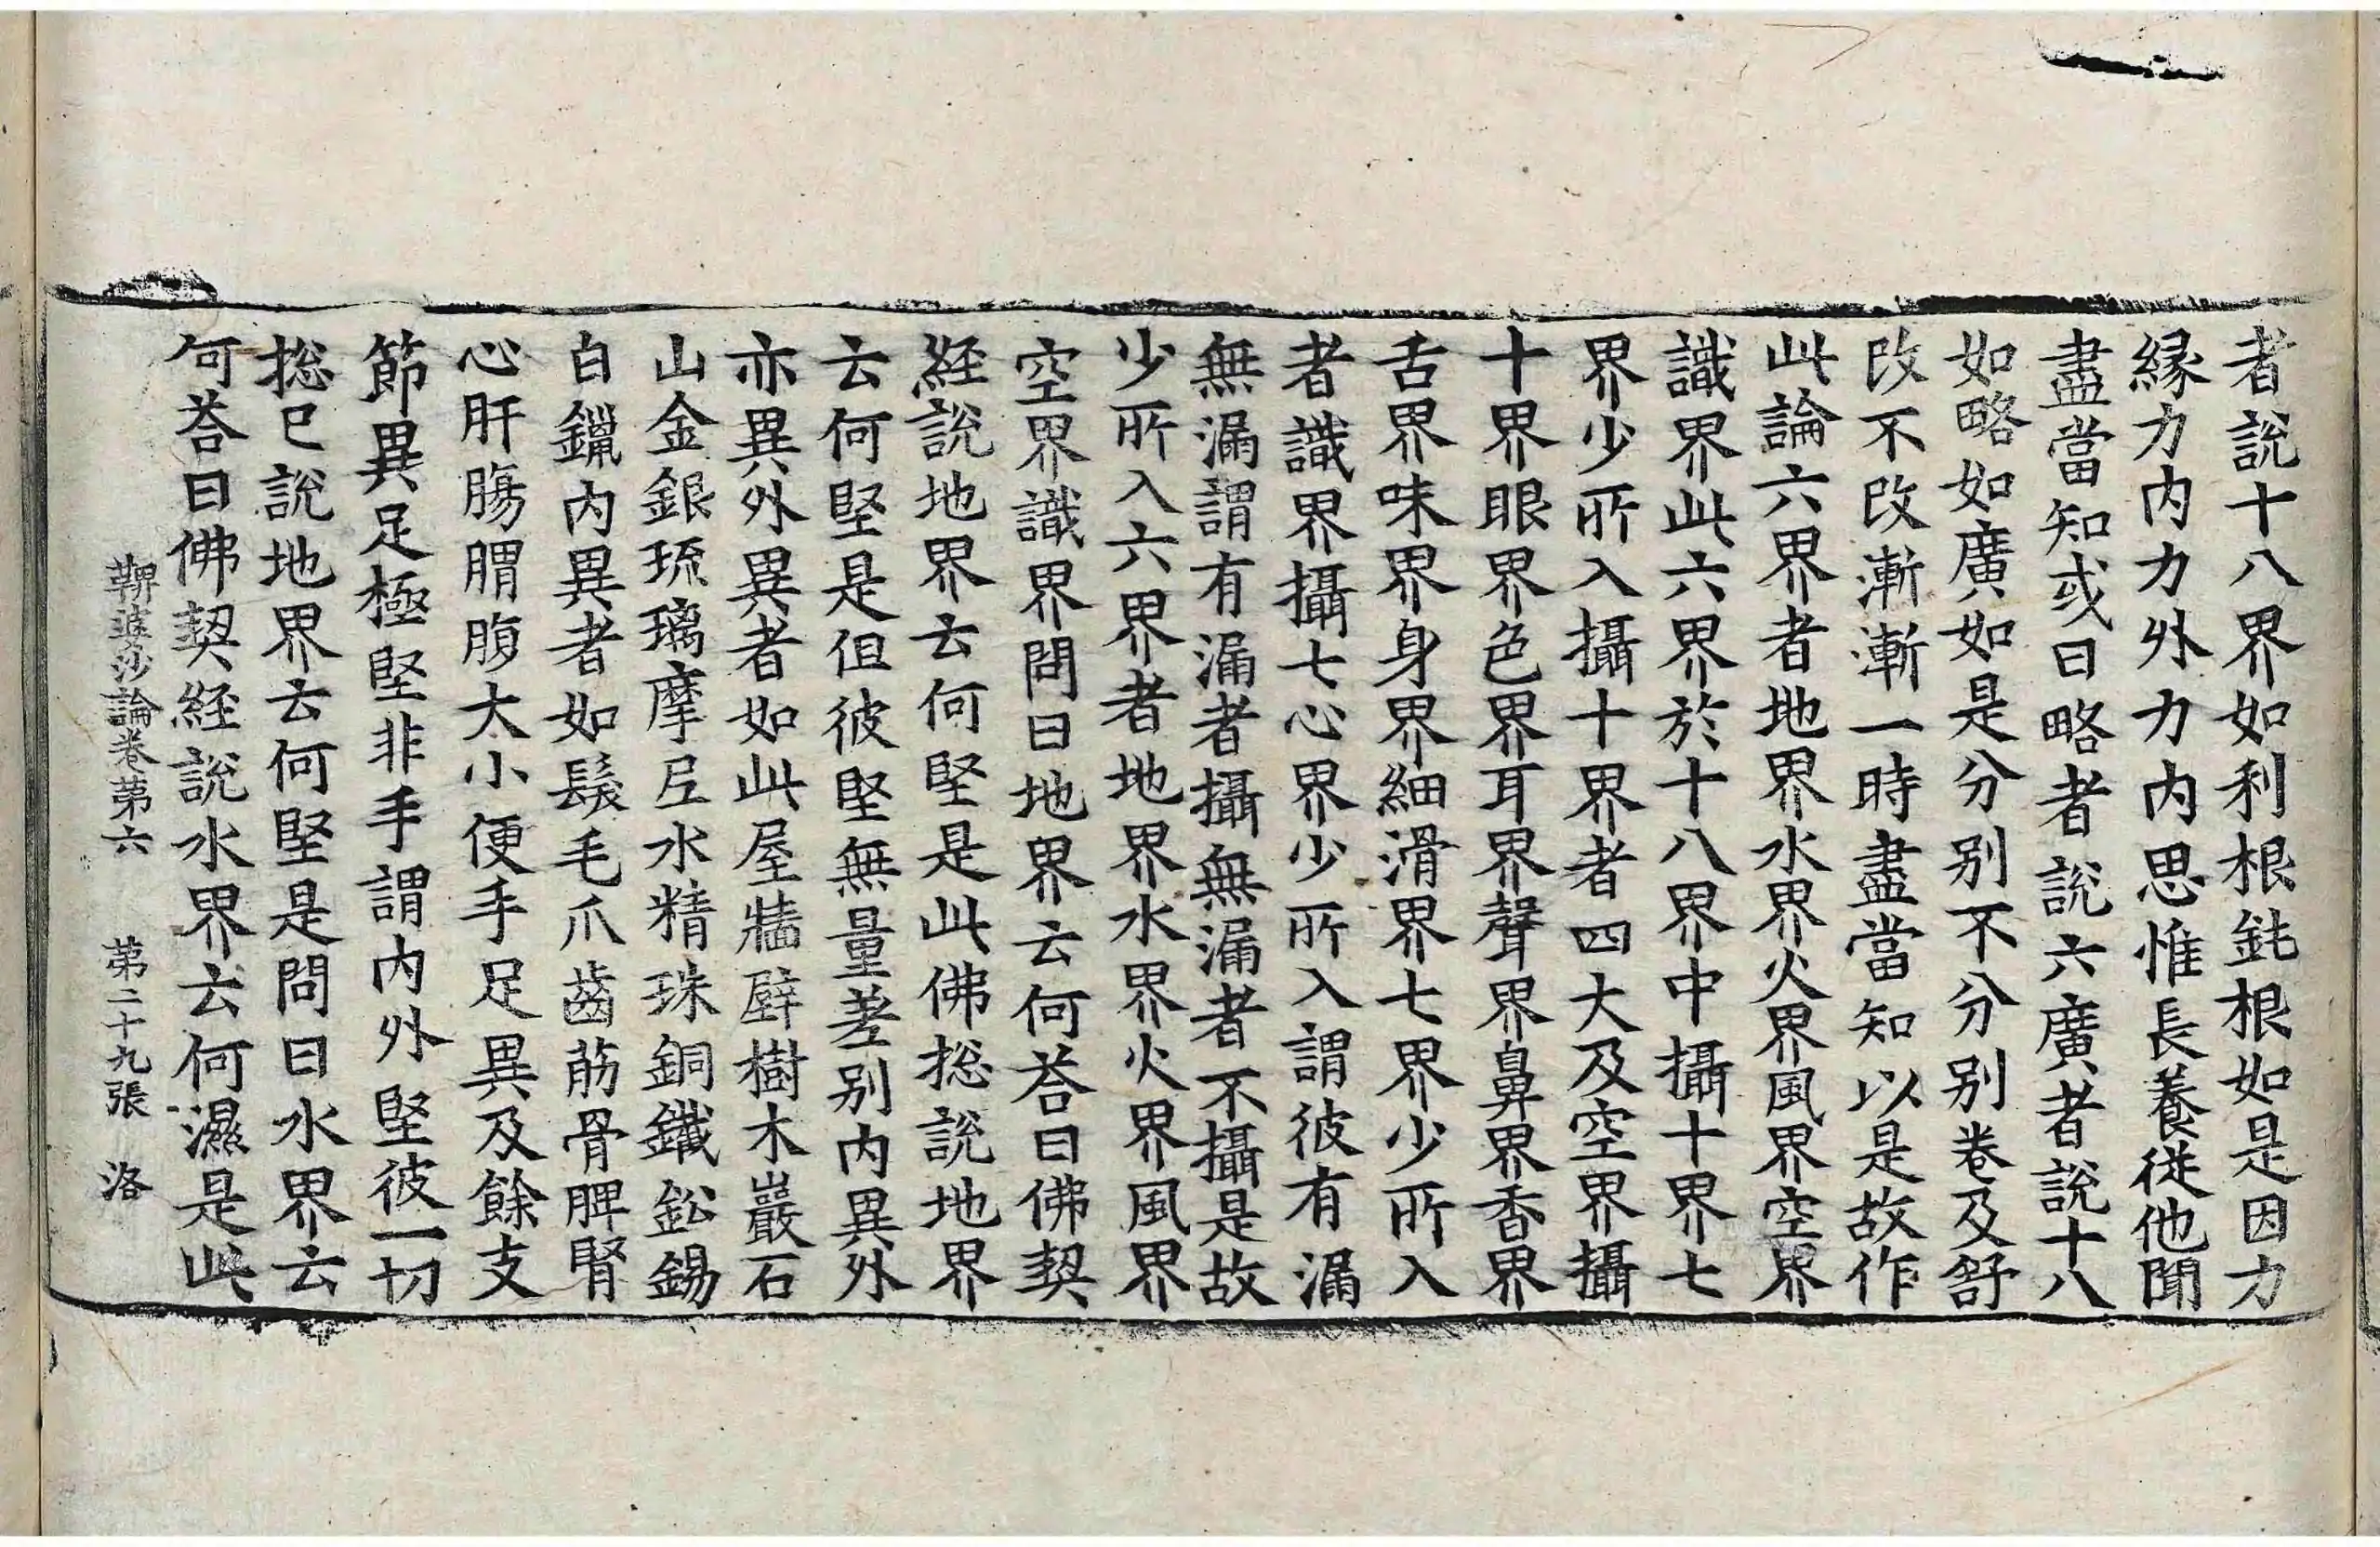 者說十八界如利根鈍根如是因力
緣力內力外力內思惟長養從他聞
盡當知或曰略者說六廣者說十八
如略如廣如是分別不分別卷及舒
改不改漸漸一時盡當知以是故作
此論六界者地界水界火界風界空界
識界此六界於十八界中攝十界七
界少所入攝十界者四大及空界攝
十界眼界色界耳界聲界鼻界香界
舌界味界身界細滑界七界少所入
者識界攝七心界少所入謂彼有漏
無漏謂有漏者攝無漏者不攝是故
少所入六界者地界水界火界風界
空界識界問曰地界云何荅曰佛契
經說地界云何堅是此佛捴說地界
云何堅是但彼堅無量差别內異外
亦異外異者如此屋牆壁樹木巖石
山金銀琉璃摩𡰱水精珠銅鐵鈆錫
白鑞內異者如髮毛爪齒筋骨脾腎
心肝腸䐜腹大小便手足異及餘支
節異足極堅非手謂內外堅彼一切
捴已說地界云何堅是問曰水界云
何荅曰佛契經說水界云何濕是此
鞞婆沙論卷第六　第二十九張　洛